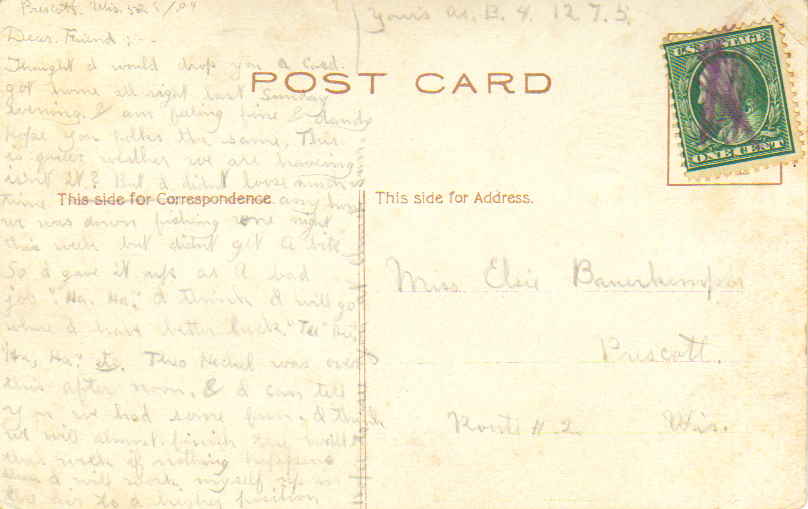 Prescott. Wis. 5
Yours as. B. 4. 12. 7. 5.
Dear. Friend ; -
Thought I would drop you a Card.
got home all right last Sunday
evening. I am feeling fine & dandy
hope you the same, This
is quite weather we are haveing
isn't it? But I didn't loose much
time any how
we was down fishing one night
this week but didnt get a bite
So I gave it up as a bad
job ". Ha. Ha". I think I will go
where I have better luck. "Te"
"Ha, Ha." etc. was over
this after noon. & I can tell
you we had some fun. I think
we will almost finish
this week if nothing happens
then I will work myself up in
the air to a higher position
POST CARD
This side for Correspondence
This side for Address.
U.S. POSTAGE
ONE CENT
Miss Elsie Bauerkemper
Prescott.
Route # 2 Wis.